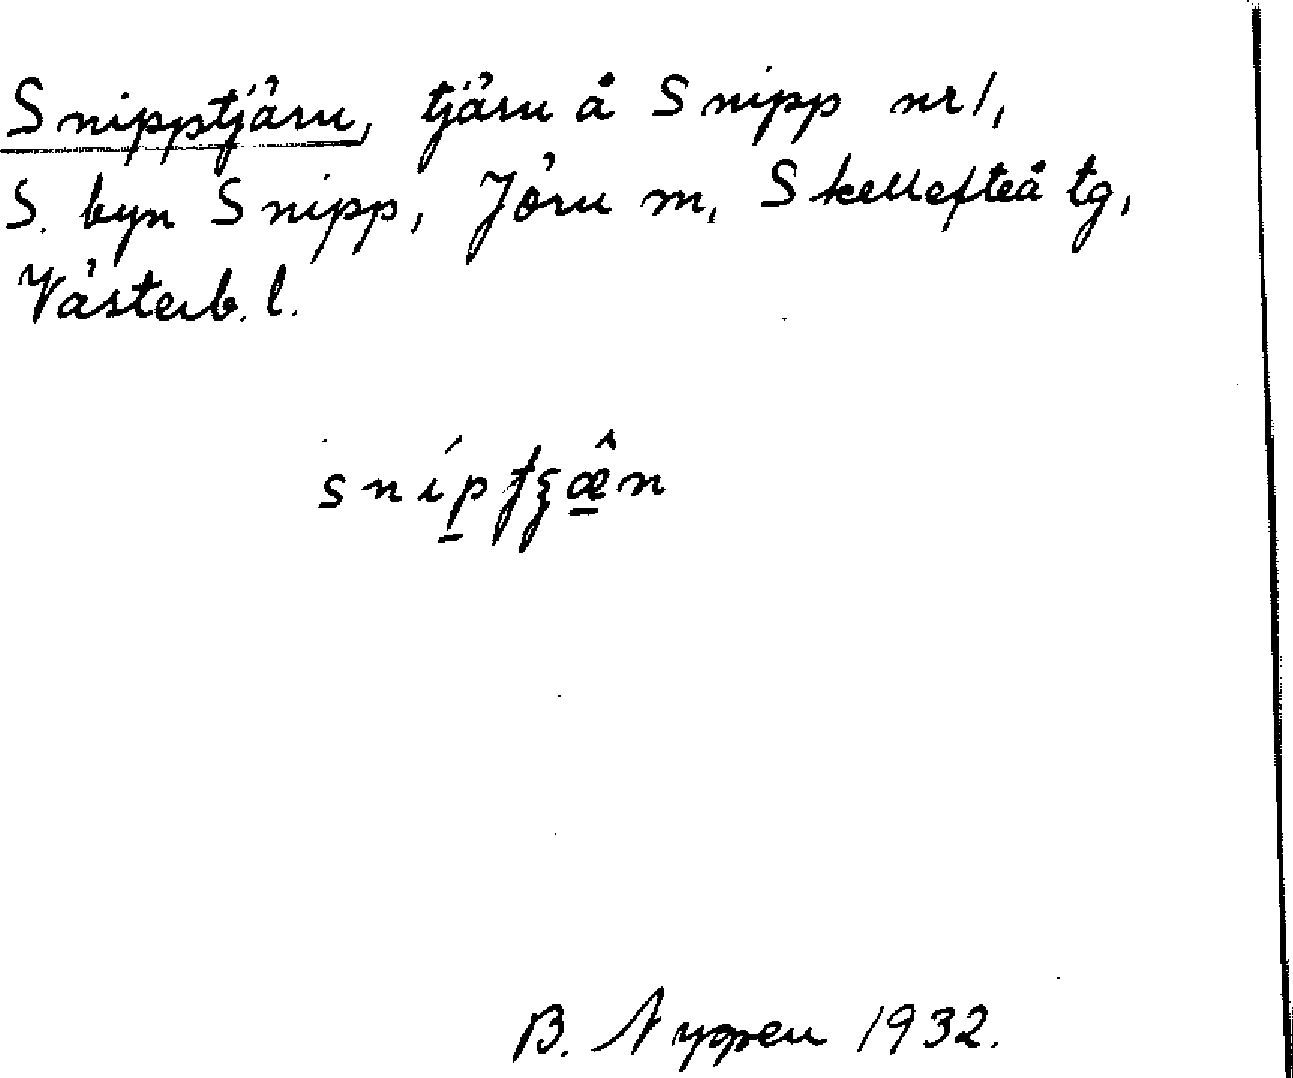 Snipptjärn, tjärn å Snipp nr 1,
S. byn Snipp, Jörn sn, Skellefteå tg,
Västerb. l.
B. Nyppen 1932.